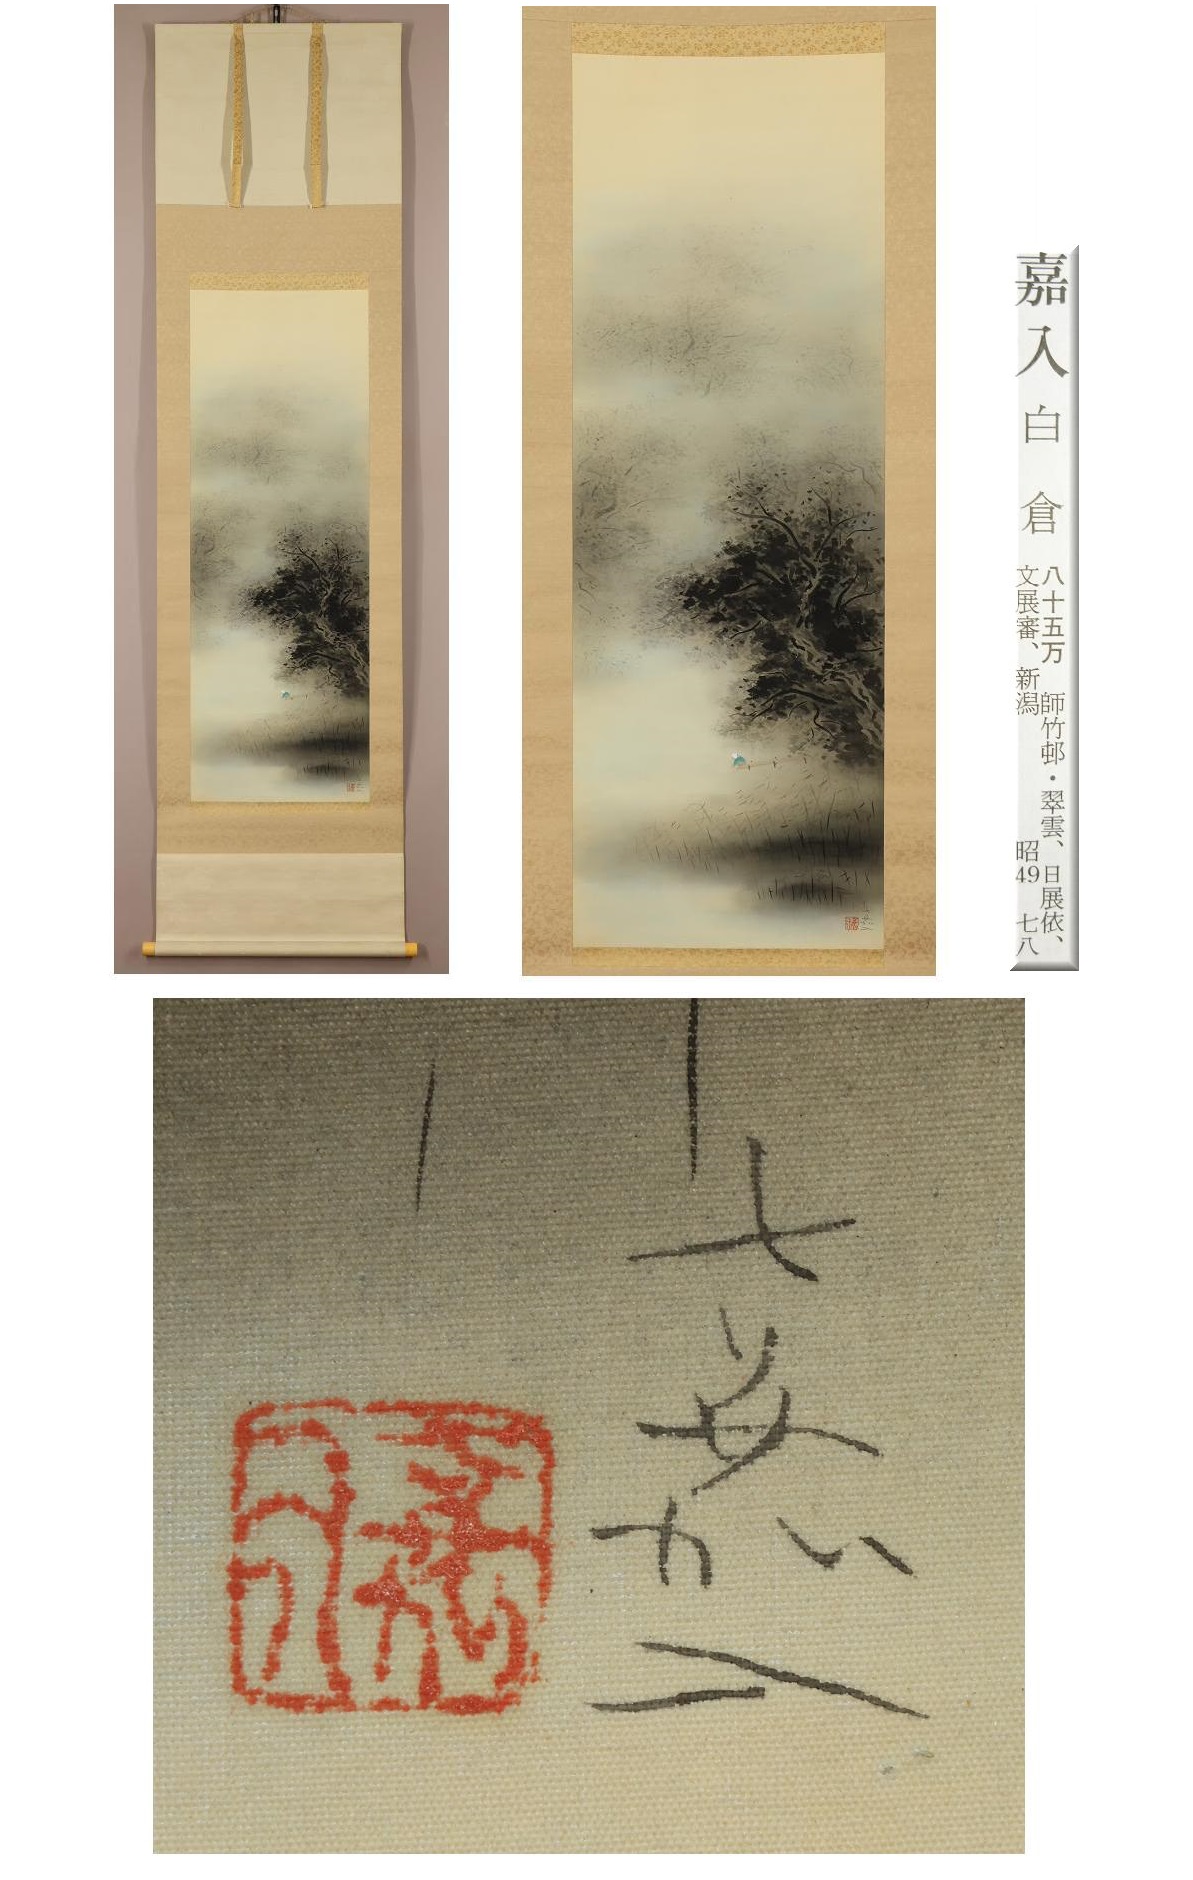 嘉入
白倉
八十五万 師竹邨・翠雲、日展依、
文展審、新潟 昭49 七八
嘉入